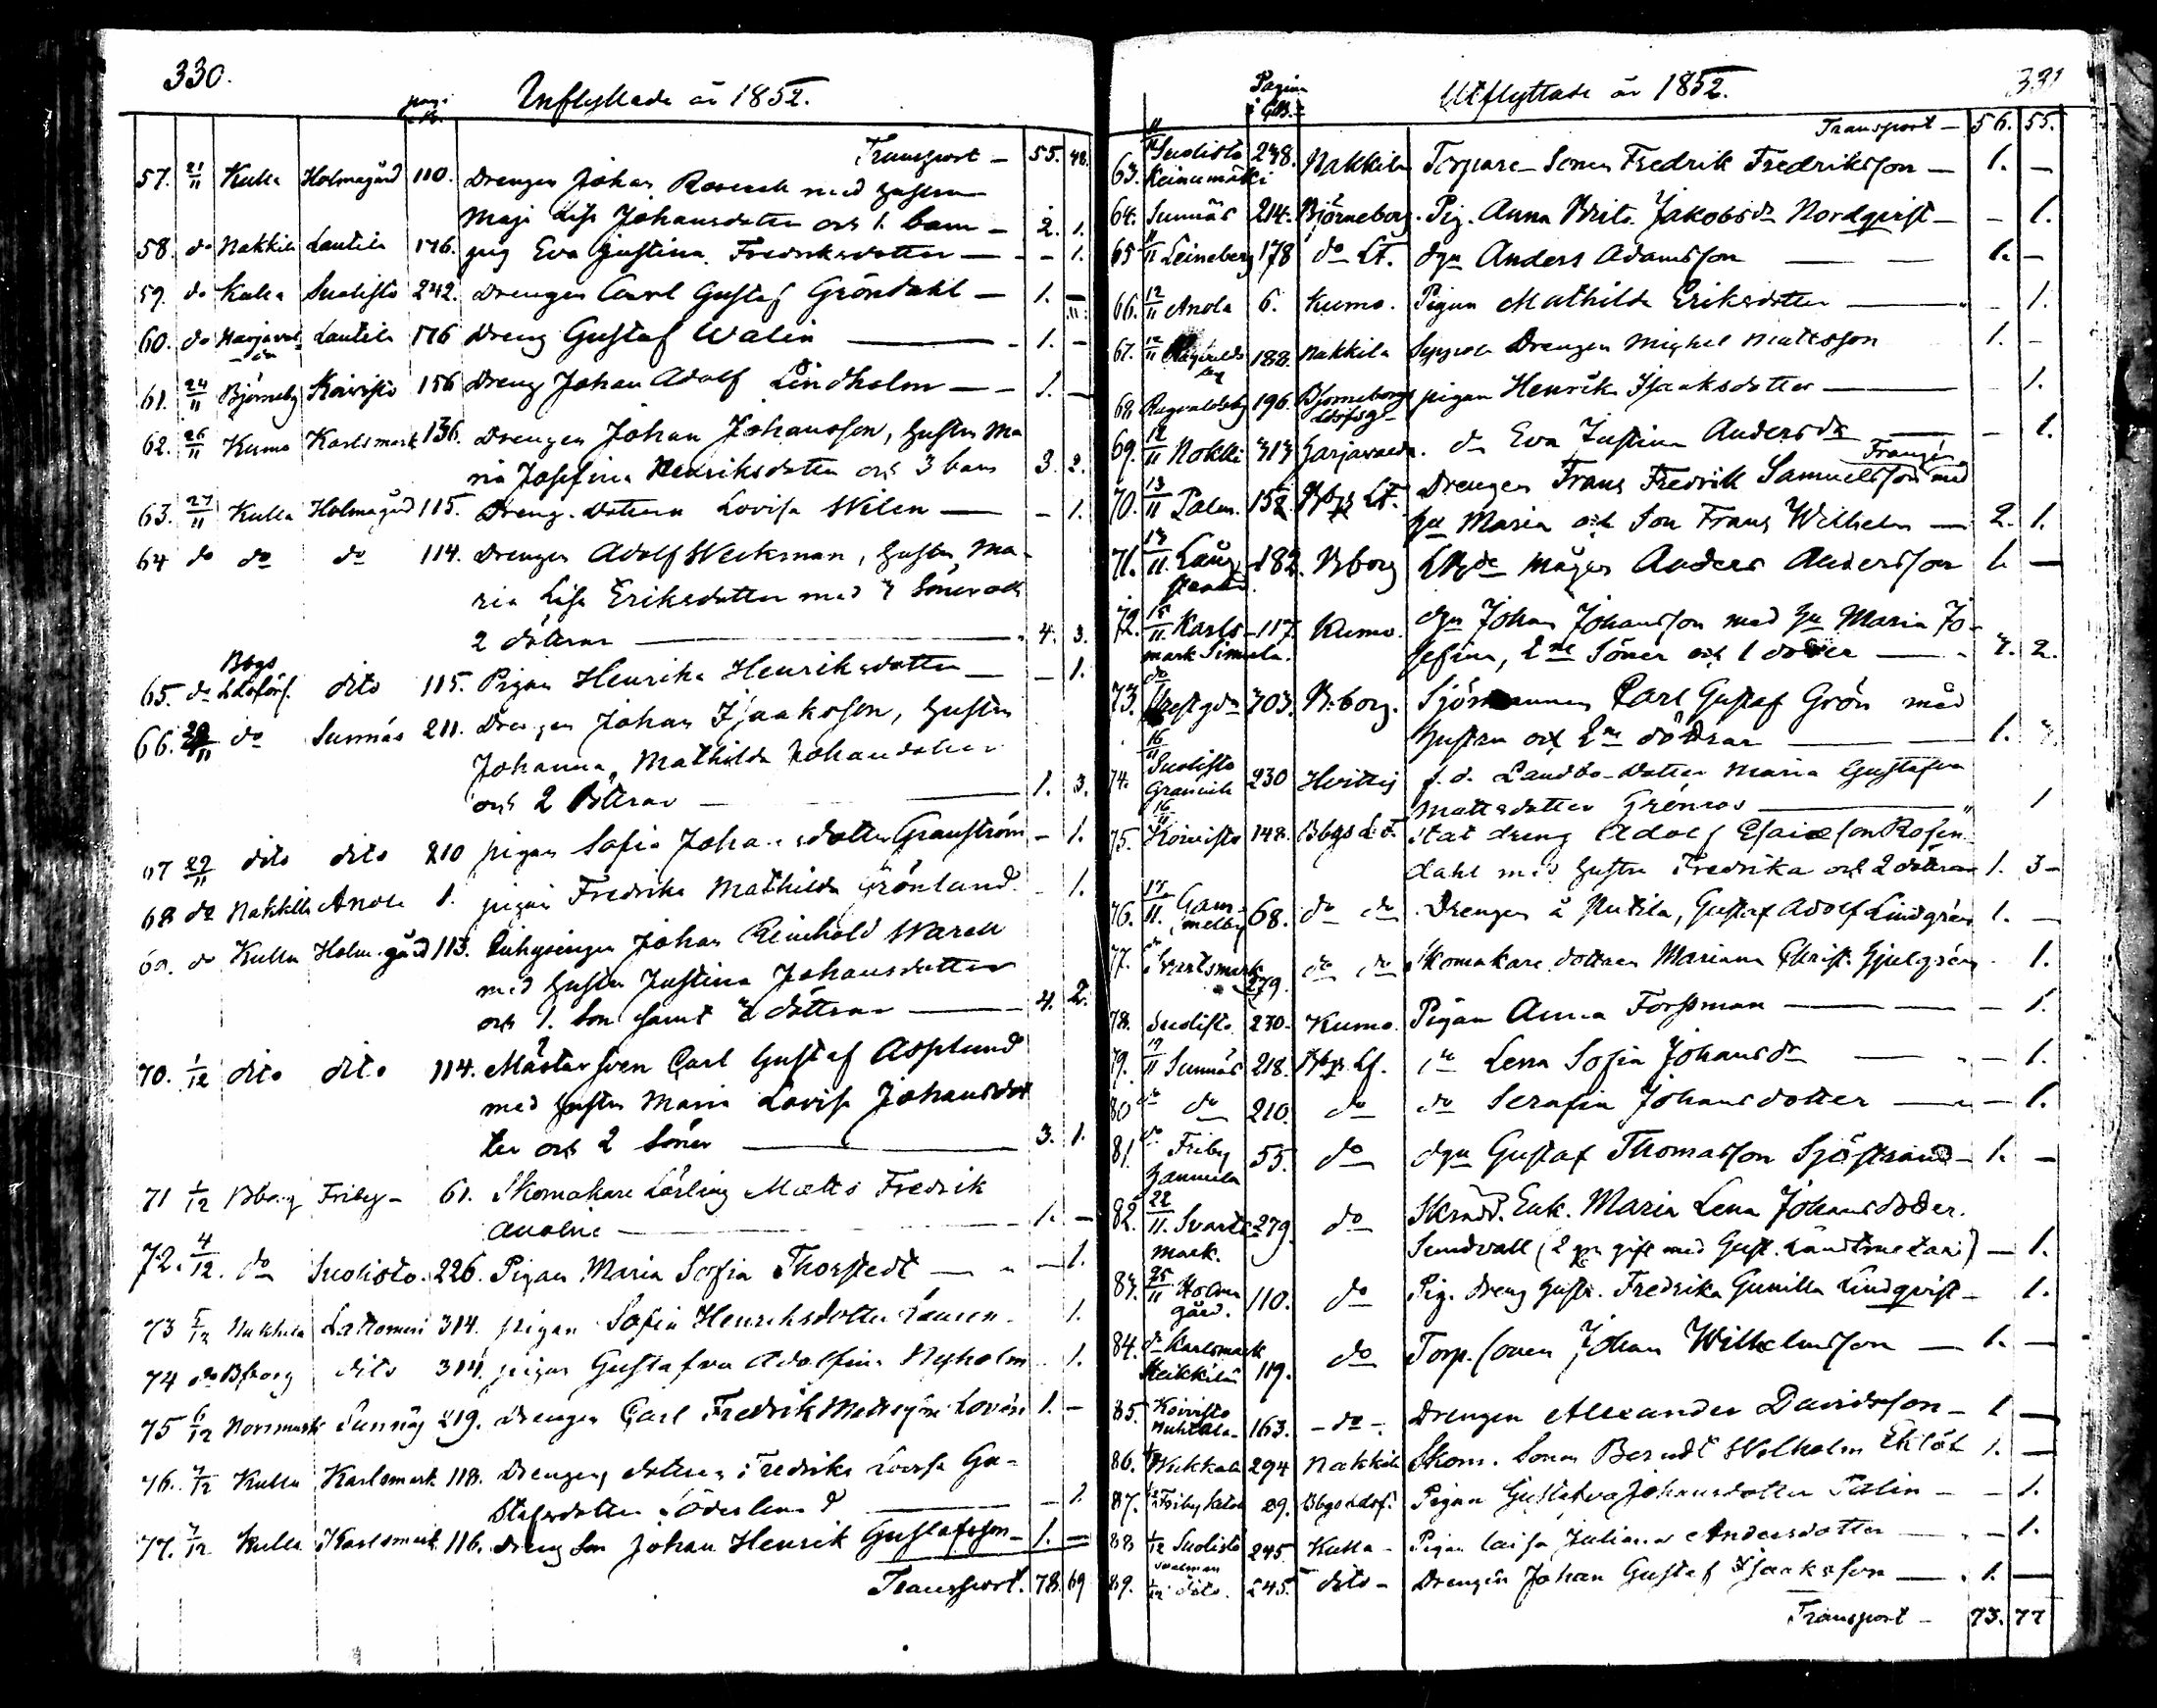 330.
pag. i
Inflyttade år 1852.
Transport — 55. 48.
57. 21/11 Kulla Holmagård 110. Drengen Johan med hustru
Maja Lisa Johansdotter och 1. barn — 2. 1.
58. do Nakkila Lautila 176. pig Eva Justina Fredriksdotter — - 1.
59. do Kulla Suolisto 242. Drengen Carl Gustaf Gröndahl — 1. —
60. do Harjaval-
da Lautila 176 Dreng Gustaf Walin — 1. —
61. 24/11 Björneby Koivisto 156 Dreng Johan Adolf Lindholm — 1. —
62. 26/11 Kumo Karlsmark 136. Drengen Johan Johansson, hustru Ma
ria Josefina Henriksdotter och 3 barn 3. 2.
63. 27/11 Kulla Holmagård 115. Dreng. Dottern Lovisa Wilen — - 1.
64 do do do 114. Drengen Adolf Weckman, hustru Ma-
ria Lisa Eriksdotter med 3 Söner och
2 döttrar — 4. 3.
65. do Bbgs Ldsförs. dito 115. Pigan Henrika Henriksdotter — - 1.
66. 29/11 do Sunnäs 211. Drengen Johan Isaksson, hustru
Johanna Mathilda Johansdotter
och 2 Döttrar — 1. 3.
67 29/11 dito dito 210 pigan Sofia Johansdotter Granström - 1.
68 do Nakkila Anola 1. pigan Fredrika Mathilda Grönlund. - 1.
69. do Kulla Holmagård 113. Inhysingen Johan Reinhold
med hustru Justina Johansdotter
och 1. Son samt döttrar — 4. 2.
70. 1/12 dito dito 114. Mästar Sven Carl Gustaf Asplund
med hustru Maria Lovisa Johansdot
ter och 2 Söner — 3. 1.
71 1/12 Bborg Friby - 61. Skomakare Lärling Matts Fredrik
— 1. —
72. 4/12. do Suolisto. 226. Pigan Maria Sofia Thorstedt — - 1.
73 5/12 Nakkila Lattomeri 314. pigan Sofia Henriksdotter 1.
74 do Bborg dito 314. pigan Gustafva Adolfina Nyholm 1.
75 6/12 Norrmark Sunnäs 219. Drengen Carl Fredrik Lovén 1. -
76. 7/12 Kulla Karlsmark 118. Drengens dottern Fredrika Lovisa Gu-
stafsdotter Söderlund — - 1.
77. 7/12 Kulla Karlsmark 116. Dreng Son Johan Henrik Gustafsson — 1. —
Transport. 78. 69
Pagina
i
Utflyttade år 1852.
331
Transport — 56. 55.
63. 11/11 Suolisto
Keinumäki 238. Nakkila Torpare-Sonen Fredrik Fredriksson — 1. —
64. Sunnäs 214. Björneborg. Pig. Anna Brita Jakobsdr Nordqvist — - 1.
65 11/11 Leineberg 178 do Lf. dgn Anders Adamsson — 1. —
66. 12/11 Anola 6. Kumo. Pigan Mathilda Eriksdotter — 1.
67. 12/11 Ragvalds
by 188. Nakkila Drengen Michel Mattsson 1. -
68 Ragvaldsby 196. Björneborgs
ldsförsg. pigan Henrika Isaksdotter — 1.
69. 12/11 Nokki 313 Harjavalda. do Eva Justina Andersdr — - 1.
70. 13/11 Palus. 158 Bbgs Lf. Drengen Frans Fredrik Samuelsson Franzén med
hu Maria och Son Frans Wilhelm — 2. 1.
71. 13/11. Lång-
182. Bborg mågen Anders Andersson 1. —
72. 15/11 Karls-
mark Simula. 117. Kumo. dgn Johan Johansson med hu Maria Jo-
sefina, 2ne Söner och 1 dotter — 3. 2.
73. do Prestgdn 303. Bborg. Sjömannen Carl Gustaf Grön med
hustru och 2ne döttrar — 1. 3.
74. 16/11 Suolisto
230 Hvittis f.d. Landbo-Dotter Maria Gustafva
Mattsdotter Grönros — 1
75. 16/11 Koivisto 148. Bbgs Lf. Stat dreng Adolf Esaiæson Rosen-
dahl med hustru Fredrika och 2 döttrar 1. 3 -
76. 17/11. Gam-
melby 68. do do Drengen å Putila, Gustaf Adolf Lindgrén 1. —
77. do Svartsmark 279. do do Skomakare dottern Mariana Christ. 1.
78. Suolisto 230. Kumo. Pigan Anna Forssman — 1.
79. 19/11 Sunnäs 218. Bbgs. Lf. do Lena Sofia Johansdr — - 1.
80 do do 210. do do Serafia Johansdotter — - 1.
81. do Friby
Hannula 55. do dgn Gustaf Thomasson Sjöstrand — 1. —
82. 22/11. Svarts-
mark. 279. do Skradd. Enk. Maria Lena Johansdotter.
Sundvall (2 gn gift med Gust. Landtmetari) — 1.
83. 25/11 Holma
gård. 110. do Pig. Dreng hustr. Fredrika Gunilla Lindqvist — 1.
84. do Karlsmark
Heikkilä 119. do Torp. sonen Johan Wilhelmsson — 1. —
85. Koivisto
163. - do - Drengen Alexander Davidsson — 1 —
86. 294 Nakkila Skom. Sonen Berndt Wilhelm Eklöf 1. —
87. Friby 29. Bbgs Ldsf. Pigan Gustafva Johansdotter Talin — - 1.
88 1/12 Suolisto 245 Kulla - Pigan Caisa Juliana Andersdotter — - 1.
89. 1/12 dito. 245. dito - Drengen Johan Gustaf Isaksson — 1. —
Transport — 73. 77